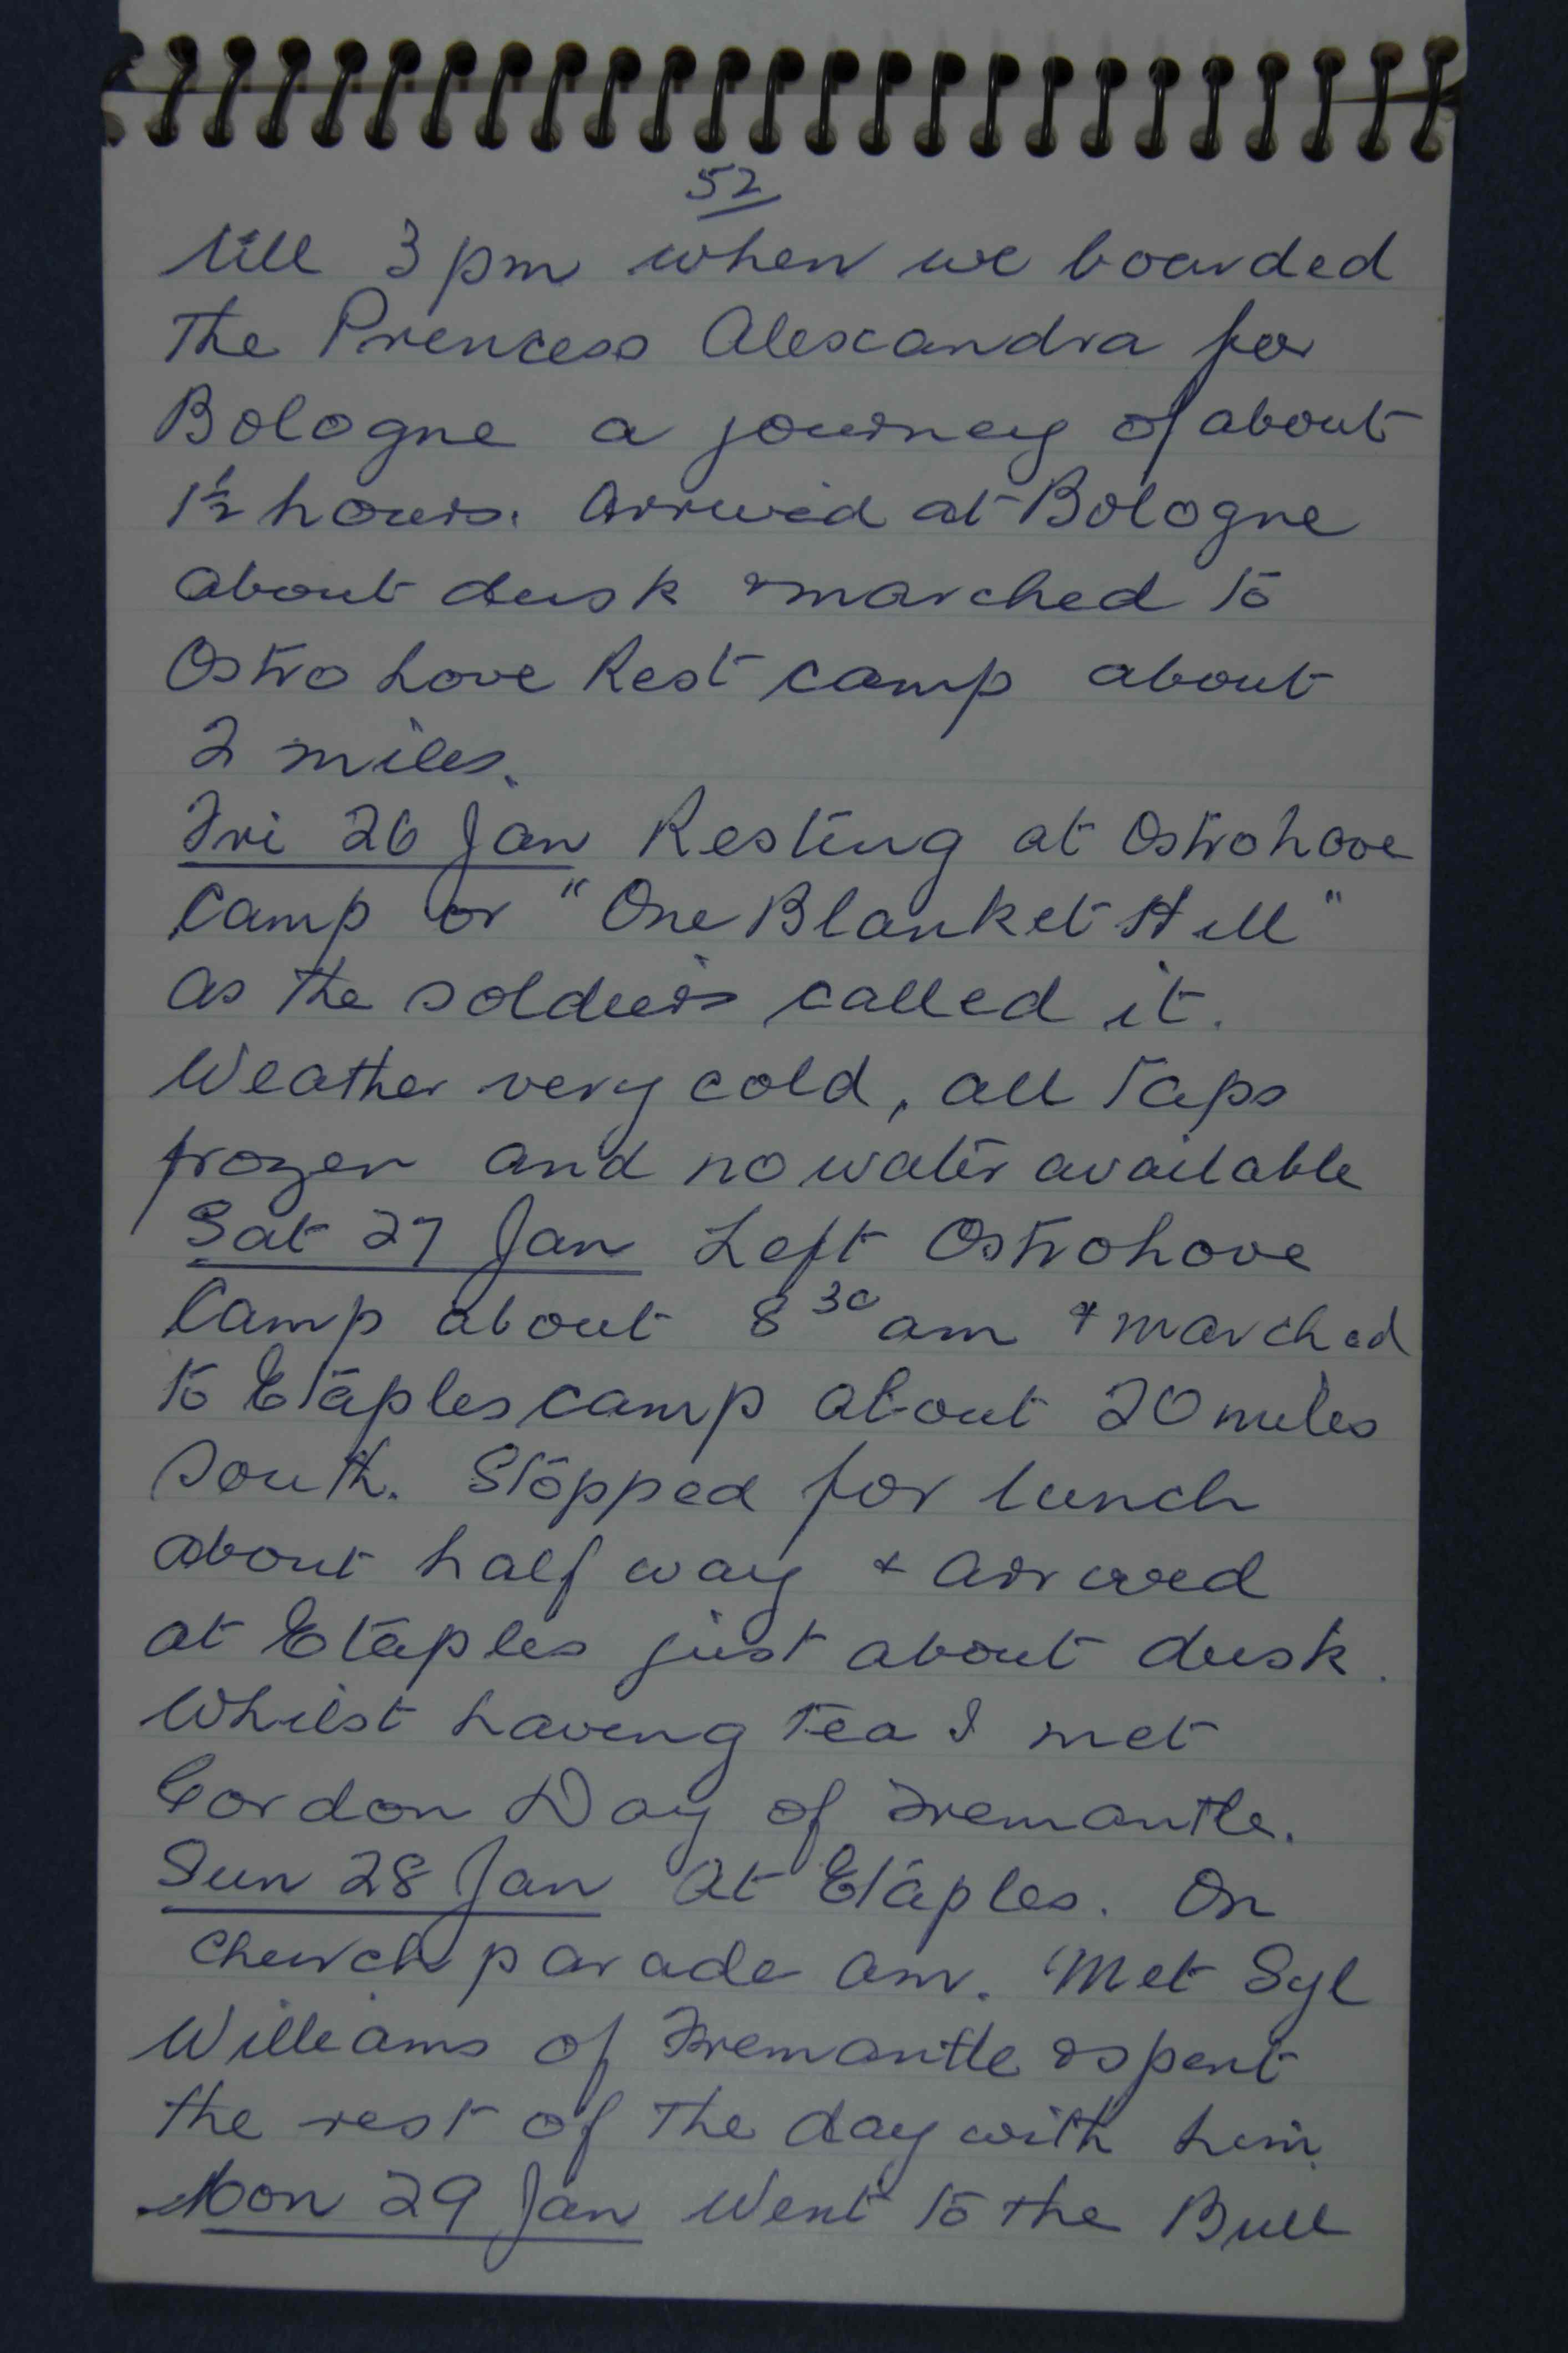 52
till 3 pm when we boarded
The Princess Alexandra for
Bologne a journey of about
1½ hours. Arrived at Bologne
about dusk & marched to
Ostrohove Rest camp about
2 miles.
Fri 26 Jan Resting at Ostrohove
Camp or "One Blanket Hill"
as the soldiers called it.
Weather very cold, all Taps
frozen and no water available
Sat 27 Jan Left Ostrohove
Camp about 8 30 am & marched
to Etaples camp about 20 miles
South. Stopped for lunch
about half way + arrived
at Etaples just about dusk.
Whilst having Tea I met
Gordon Day of Fremantle.
Sun 28 Jan At Etaples. On
Church parade am. Met Syl
Williams of Fremantle & spent
the rest of The day with him.
Mon 29 Jan Went to the Bull